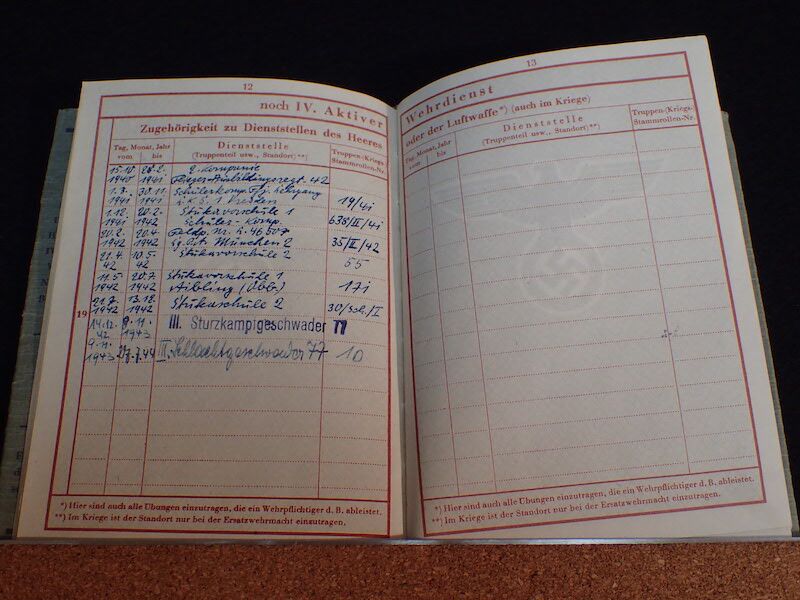 12
noch IV. Aktiver
Zugehörigkeit zu Dienststellen des Heeres
Tag, Monat, Jahr
vom bis
Dienststelle
(Truppenteil usw., Standort)**)
Truppen-(Kriegs-
Stammrollen-Nr.
15.10. 28.2. 2. Kompanie
1940 1941 Fliegerausbildungsregt. 42
1.3. 30.11. Schülerkomp.
1941 1941 Dresden 19/41
1.12. 20.2. Stukavorschule 1
1941 1942 Schüler-Komp. 638/II/41
20.2. 20.4. Feldp. Nr. L 46507
1942 1942 München 2 35/II/42
21.4. 10.5. Stukavorschule 2
42 42 55
11.5. 20.7. Stukavorschule 1
1942 1942 Aibling (Obb) 171
21.7. 13.12. Stukaschule 2
19 1942 1942 30/Sch./I
14.12. 9.11. III. Sturzkampfgeschwader 77
42 1943
9.11.
1943 27.7.44 III. Schlachtgeschwader 77 10
*) Hier sind auch alle Übungen einzutragen, die ein Wehrpflichtiger d. B. ableistet.
**) Im Kriege ist der Standort nur bei der Ersatzwehrmacht einzutragen.
13
Wehrdienst
oder der Luftwaffe*) (auch im Kriege)
Tag, Monat, Jahr
vom bis
Dienststelle
(Truppenteil usw., Standort)**)
Truppen-(Kriegs-
Stammrollen-Nr.
*) Hier sind auch alle Übungen einzutragen, die ein Wehrpflichtiger d. B. ableistet.
**) Im Kriege ist der Standort nur bei der Ersatzwehrmacht einzutragen.